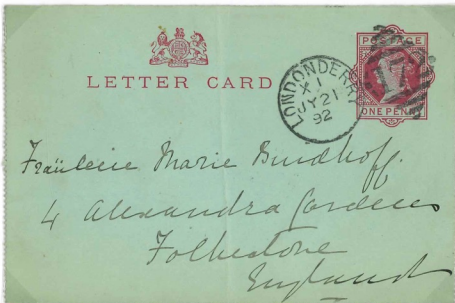 LETTER CARD
POSTAGE
ONE PENNY
LONDONDERRY
X 1
JY 21
92
Fraüleine Marie Bindhoff.
4 Alexandra Gardens
Folkestone
England